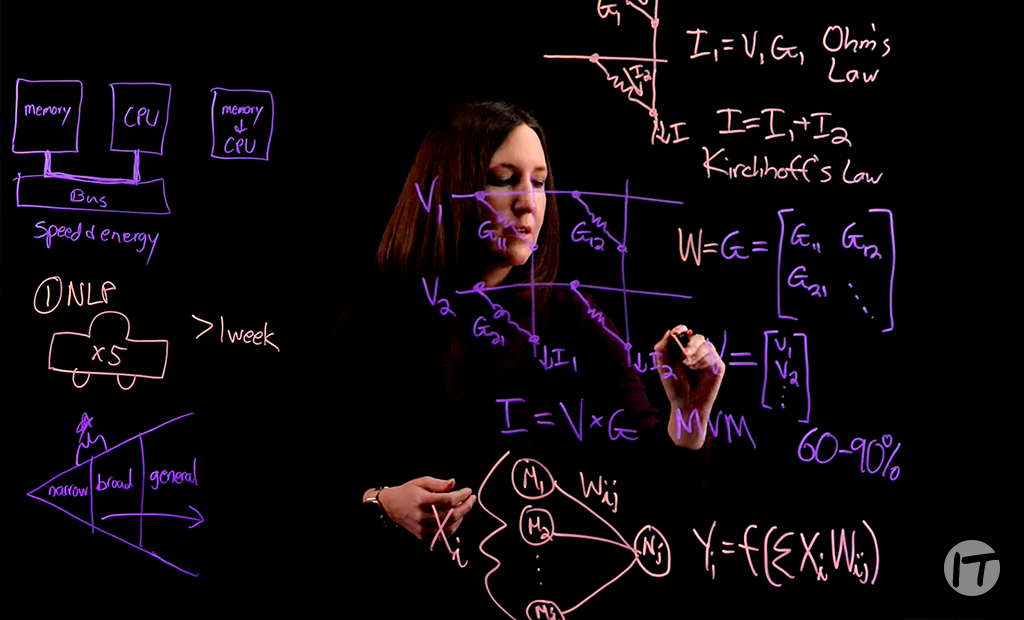 memory
CPU
memory
↓
CPU
Bus
Speed & energy
① NLP
x5
>1week
narrow
broad
general
G₁
I₂
↓I
I₁ = V₁G₁ Ohm's
Law
I = I₁+I₂
Kirchhoff's Law
V₁
G₁₁
G₁₂
V₂
G₂₁
↓I₁
↓I₂
W=G=[G₁₁ G₁₂
G₂₁ ⋱]
V=[V₁
V₂
⋮]
I = V×G
MVM
60-90%
Xᵢ
M₁
M₂
⋮
Wᵢⱼ
Nⱼ
Yⱼ=f(ΣXᵢWᵢⱼ)
IT